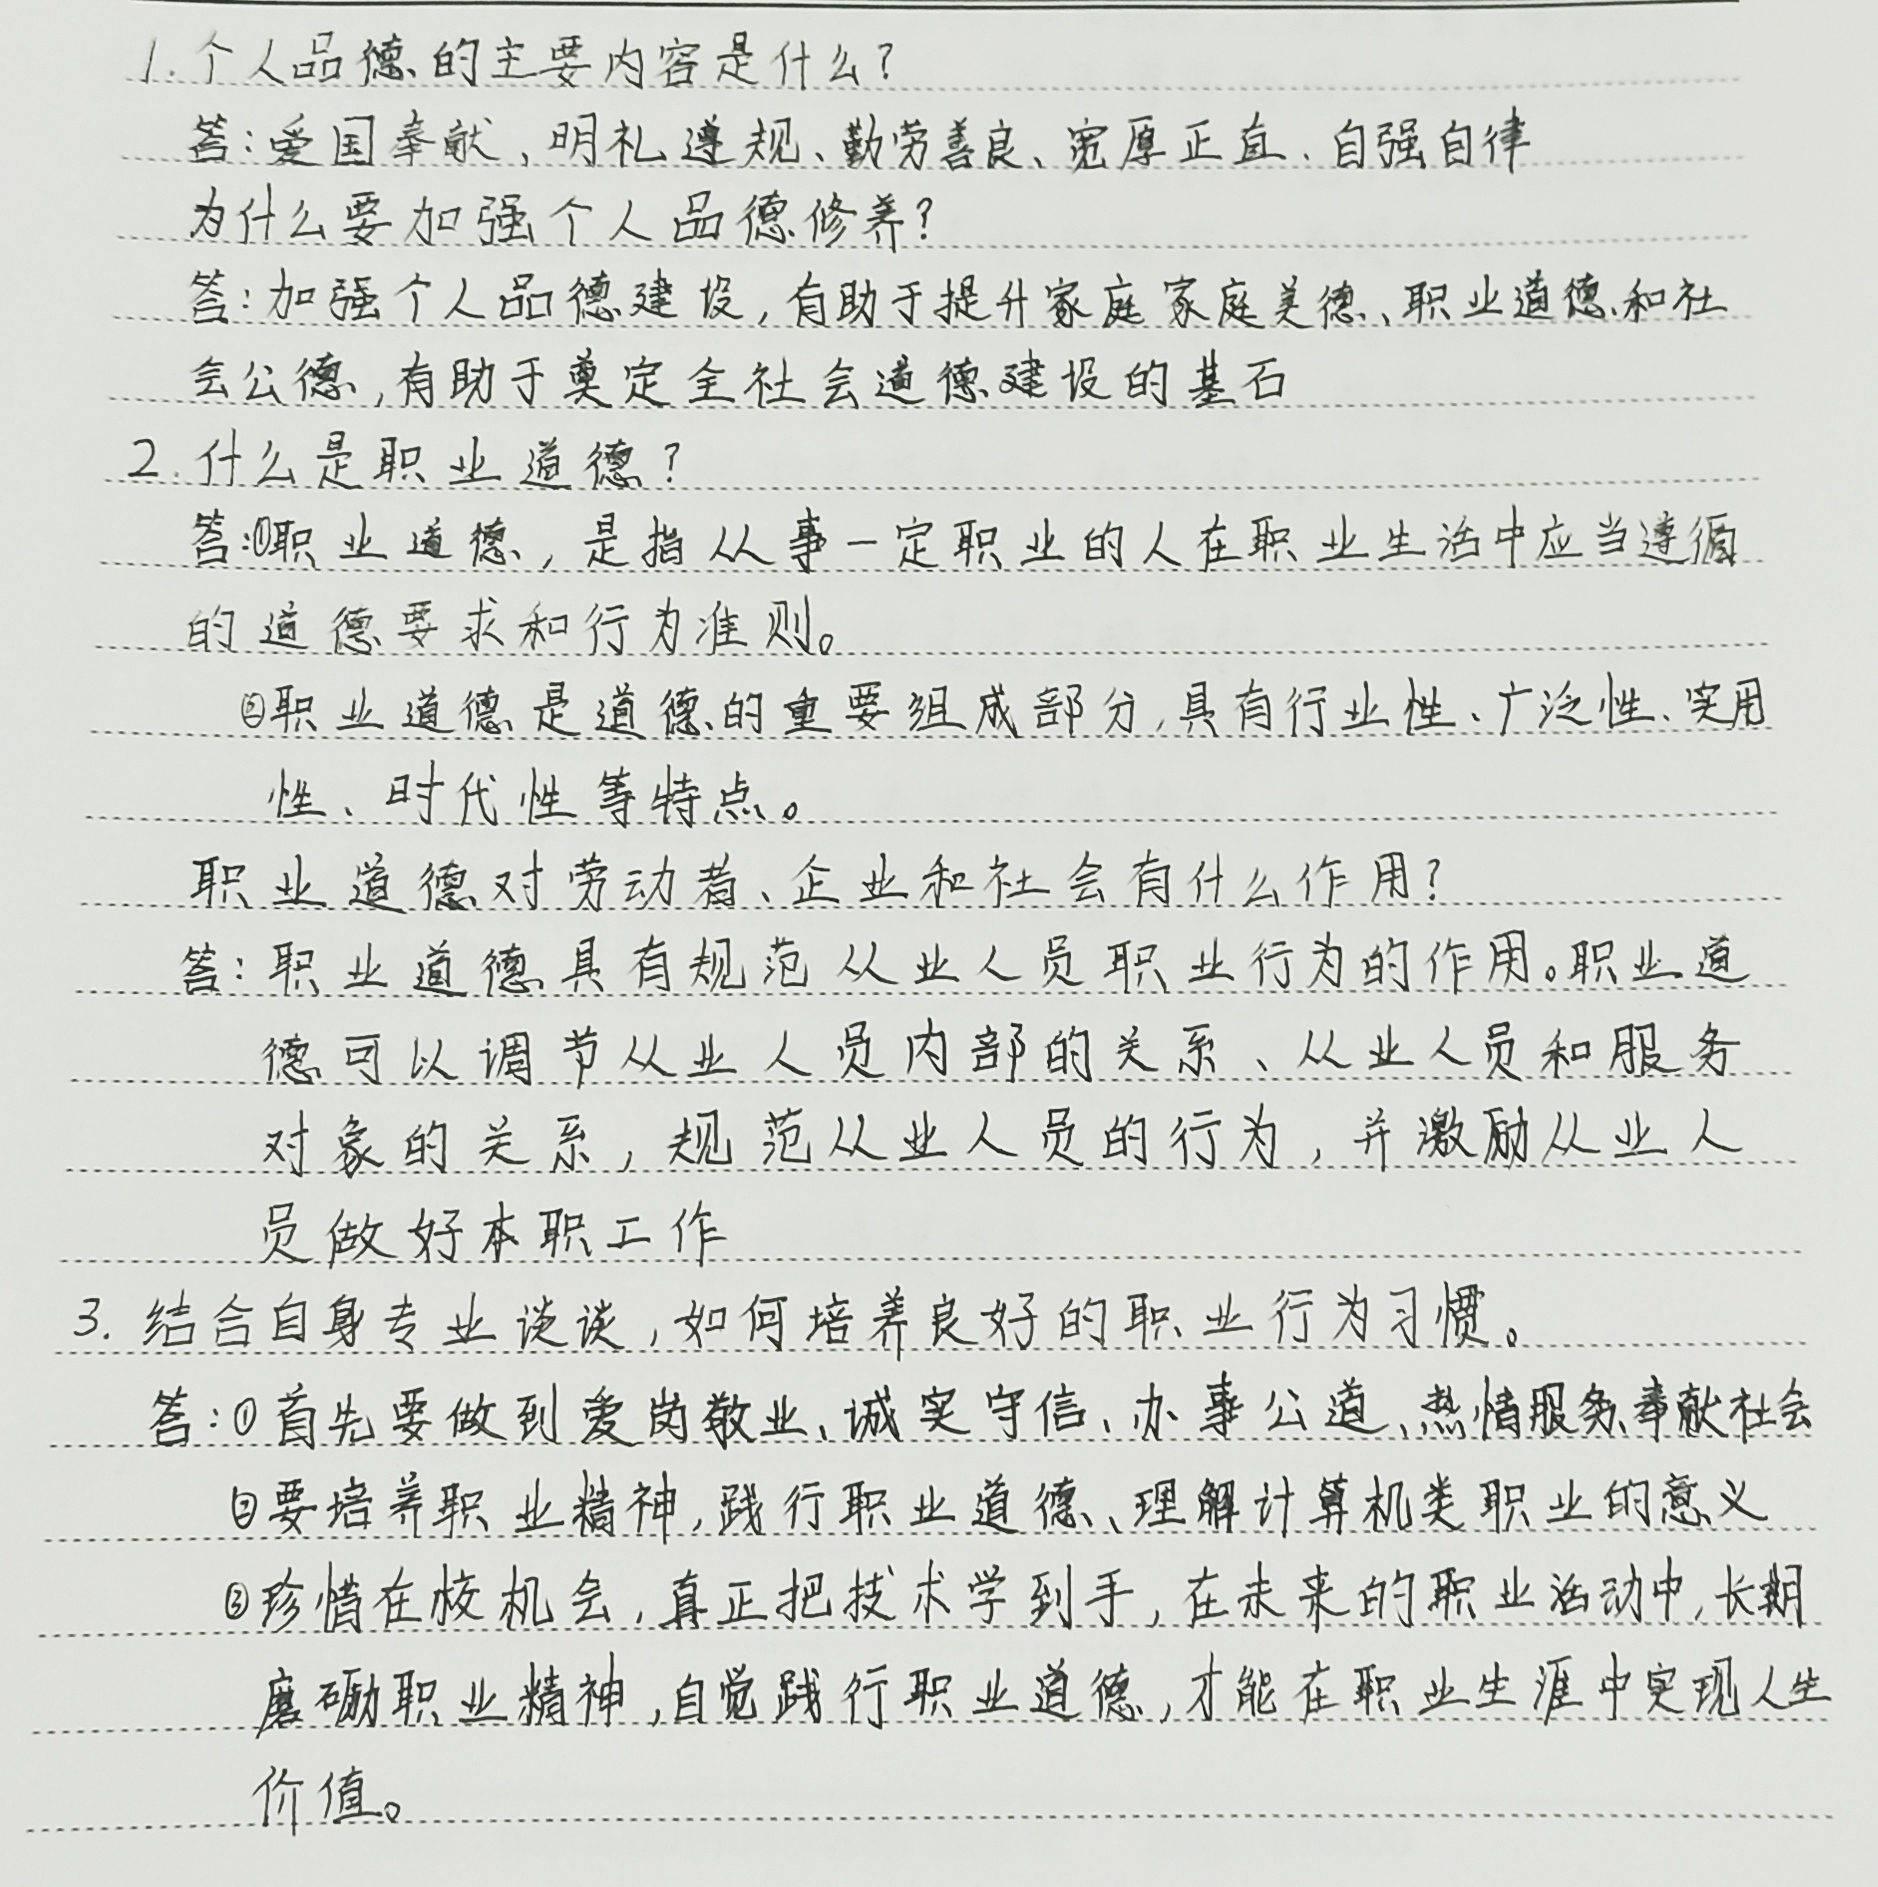 1.个人品德的主要内容是什么?
答:爱国奉献、明礼遵规、勤劳善良、宽厚正直、自强自律
为什么要加强个人品德修养?
答:加强个人品德建设,有助于提升家庭家庭美德、职业道德和社
会公德,有助于奠定全社会道德建设的基石
2.什么是职业道德?
答:①职业道德,是指从事一定职业的人在职业生活中应当遵循
的道德要求和行为准则。
②职业道德是道德的重要组成部分,具有行业性、广泛性、实用
性、时代性等特点。
职业道德对劳动者、企业和社会有什么作用?
答:职业道德具有规范从业人员职业行为的作用。职业道
德可以调节从业人员内部的关系、从业人员和服务
对象的关系,规范从业人员的行为,并激励从业人
员做好本职工作
3.结合自身专业谈谈,如何培养良好的职业行为习惯。
答:①首先要做到爱岗敬业、诚实守信、办事公道、热情服务、奉献社会
②要培养职业精神,践行职业道德、理解计算机类职业的意义
③珍惜在校机会,真正把技术学到手,在未来的职业活动中,长期
磨砺职业精神,自觉践行职业道德,才能在职业生涯中实现人生
价值。